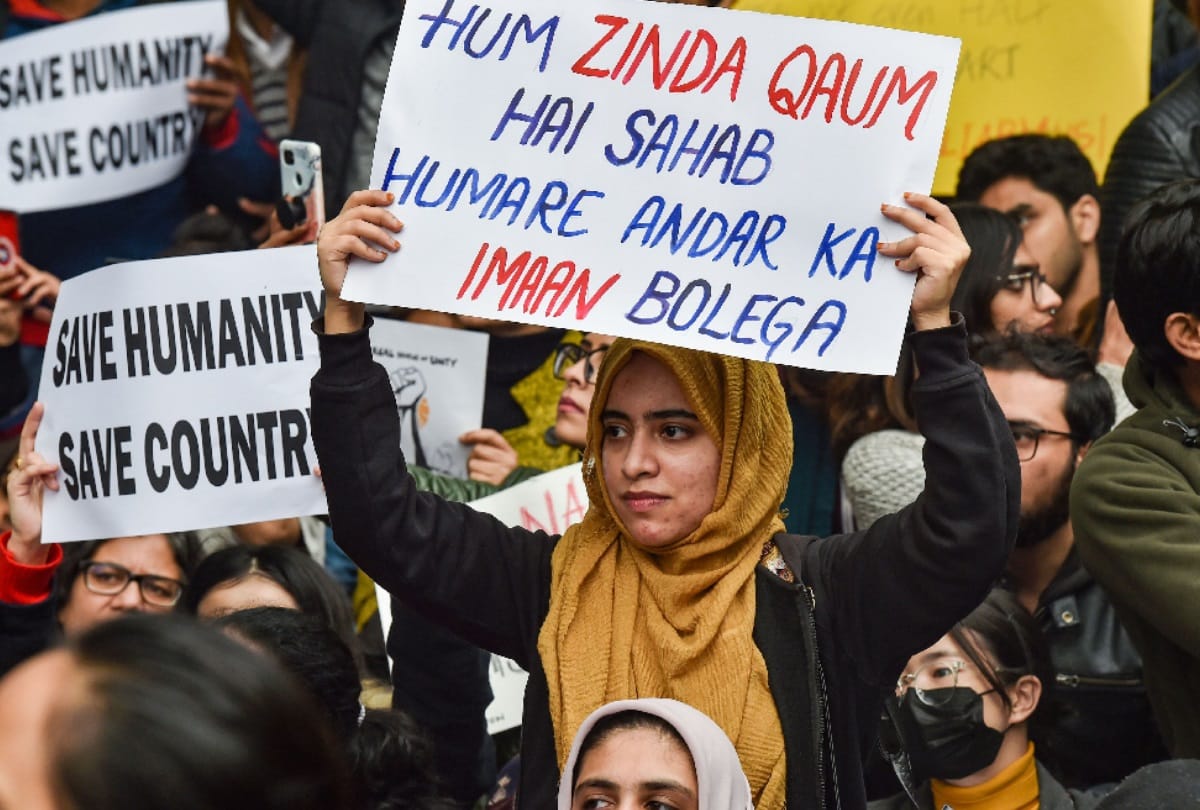 SAVE HUMANITY
SAVE COUNTRY
HUM ZINDA QAUM
HAI SAHAB
HUMARE ANDAR KA
IMAAN BOLEGA
SAVE HUMANITY
SAVE COUNTRY
HALF
ART
NA